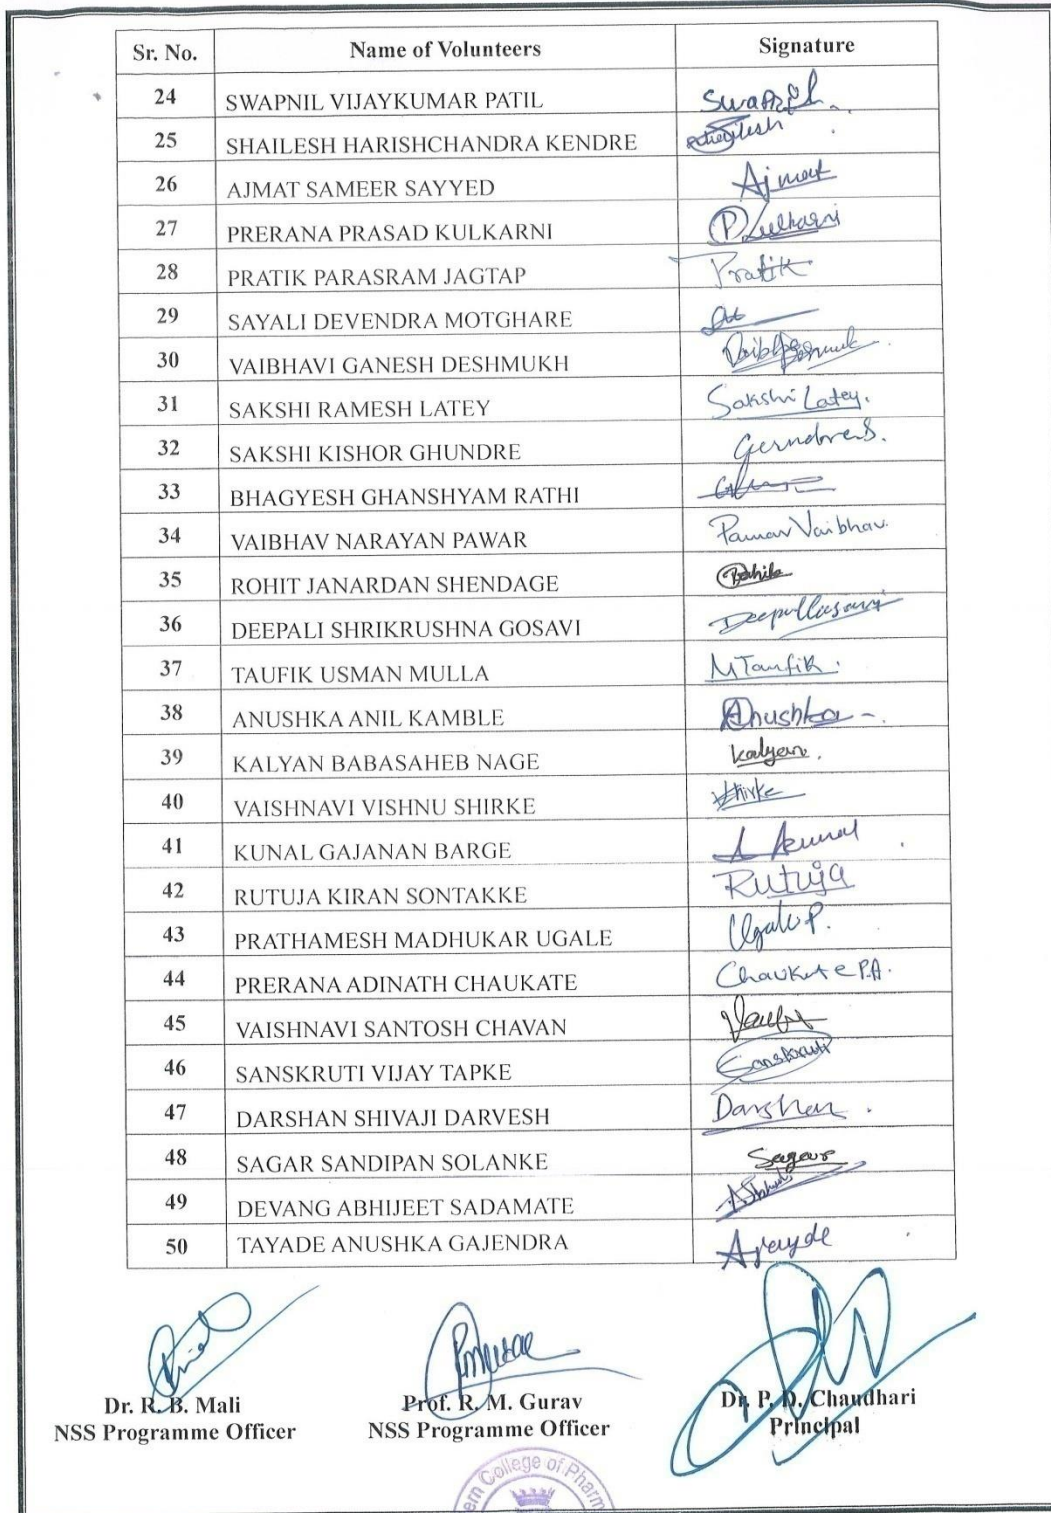 Sr. No. Name of Volunteers Signature
24 SWAPNIL VIJAYKUMAR PATIL Swapnil
25 SHAILESH HARISHCHANDRA KENDRE Shailesh
26 AJMAT SAMEER SAYYED Ajmat
27 PRERANA PRASAD KULKARNI P Kulkarni
28 PRATIK PARASRAM JAGTAP Pratik
29 SAYALI DEVENDRA MOTGHARE
30 VAIBHAVI GANESH DESHMUKH
31 SAKSHI RAMESH LATEY Sakshi Latey.
32 SAKSHI KISHOR GHUNDRE
33 BHAGYESH GHANSHYAM RATHI
34 VAIBHAV NARAYAN PAWAR Pawar Vaibhav.
35 ROHIT JANARDAN SHENDAGE
36 DEEPALI SHRIKRUSHNA GOSAVI
37 TAUFIK USMAN MULLA M Taufik.
38 ANUSHKA ANIL KAMBLE Anushka
39 KALYAN BABASAHEB NAGE Kalyan.
40 VAISHNAVI VISHNU SHIRKE Shirke
41 KUNAL GAJANAN BARGE
42 RUTUJA KIRAN SONTAKKE Rutuja
43 PRATHAMESH MADHUKAR UGALE Ugale P.
44 PRERANA ADINATH CHAUKATE Chaukate P.A.
45 VAISHNAVI SANTOSH CHAVAN
46 SANSKRUTI VIJAY TAPKE Sanskruti
47 DARSHAN SHIVAJI DARVESH Darshan.
48 SAGAR SANDIPAN SOLANKE Sagar
49 DEVANG ABHIJEET SADAMATE
50 TAYADE ANUSHKA GAJENDRA
Dr. R. B. Mali Prof. R. M. Gurav Dr. P. D. Chaudhari
NSS Programme Officer NSS Programme Officer Principal
ern College of Pharm